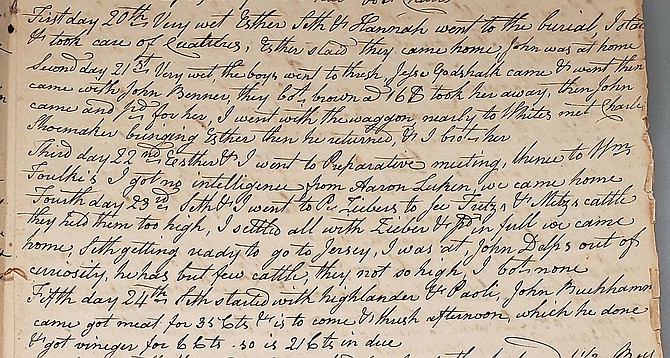 First day 20th Very wet Esther Seth & Hannah went to the burial, I staid
& took care of Creatures, Esther staid they came home, John was at home
Second day 21st Very wet the boys went to thresh, Jesse Godshalk came & went then
came with John Benner, they bot brown a 16D took her away, then John
came and pd for her, I went with the waggon nearly to Whites met Charls
Shoemaker bringing Esther then he returned, & I brot her
Third day 22nd Eesther & I went to Preparative meeting, thence to Wm
Foulke's I got no intelligence from Aaron Luken, we came home
Fourth day 23rd, Seth & I went to P. Ziebers to see Fritzs & Metzs cattle
they held them too high, I settled all with Zieber & pd in full we came
home, Seth getting ready to go to Jersey, I was at John Dalps out of
curiosity, he has but few cattle, they not so high, I bot none
Fifth day 24th, Seth started with highlander & Paoli, John Buckhamm
came got meat for 35 Cts & is to come & thrush afternoon, which he done
& got vineger for 6 Cts so is 21 Cts in due